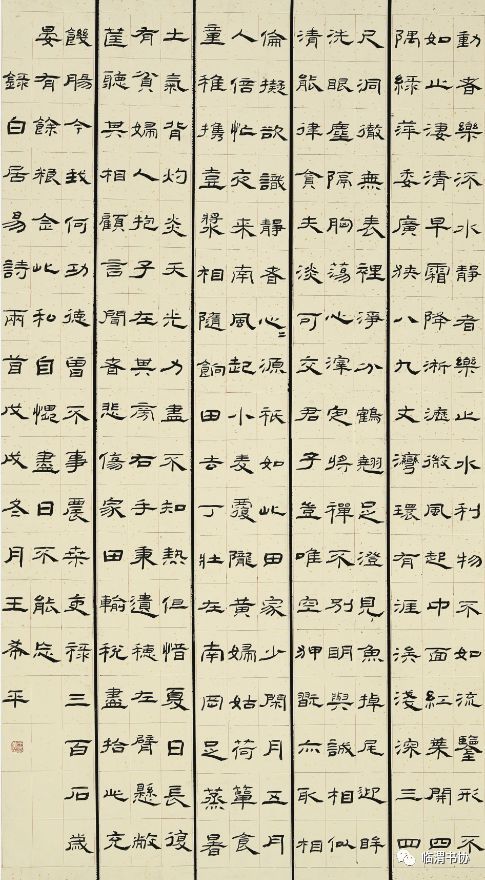 動者樂流水靜者樂止水利物不如流鑒形不
如止淒清早霜降淅瀝微風起中面紅葉開四
隅綠萍委廣狹八九丈灣環有涯涘淺深三四
尺洞徹無表裡淨分鶴翹足澄見魚掉尾迎眸
洗眼塵隔胸蕩心滓定將禪不別明與誠相似
清能律貪夫淡可交君子豈唯空狎翫亦取相
倫擬欲識靜者心〻源祇如此田家少閑月五月
人倍忙夜來南風起小麥覆隴黃婦姑荷簞食
童稚攜壺漿相隨餉田去丁壯在南岡足蒸暑
土氣背灼炎天光力盡不知熱但惜夏日長復
有貧婦人抱子在其旁右手秉遺穗左臂懸敝
筐聽其相顧言聞者悲傷家田輸稅盡拾此充
饑腸今我何功德曾不事農桑吏祿三百石歲
晏有餘糧念此私自愧盡日不能忘
錄白居易詩兩首戊戌冬月王希平
临渭书协